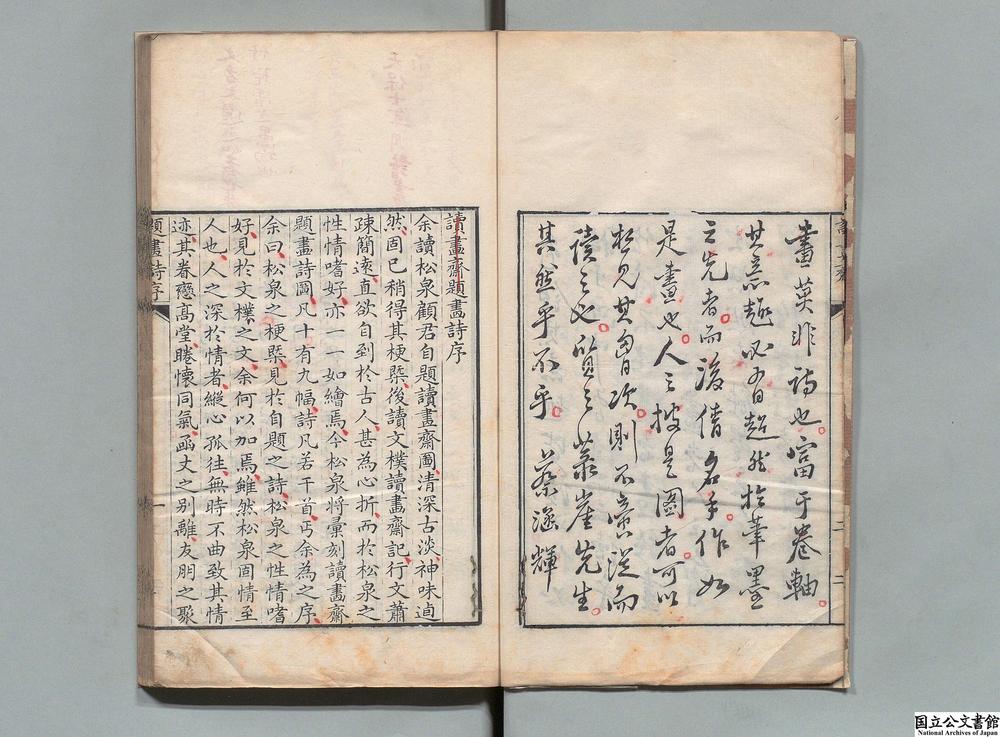 畫莫非詩也富于卷軸
其意趣必有超然於筆墨
之先者而後借名手作如
是畫也人之披是圖者可以
想見其胸次則不啻從而
讀之也質之菉崖先生
其然乎不乎 蔡涵輝
讀畫齋題畫詩序
余讀松泉顧君自題讀畫齋圖清深古淡神味逌
然固已稍得其梗槩後讀文樸讀畫齋記行文蕭
疎簡遠直欲自到於古人甚為心折而於松泉之
性情嗜好亦一一如繪焉今松泉將彙刻讀畫齋
題畫詩圖凡十有九幅詩凡若干首丐余為之序
余曰松泉之梗槩見於自題之詩松泉之性情嗜
好見於文樸之文余何以加焉雖然松泉固情至
人也人之深於情者縱心孤往無時不曲致其情
迹其眷戀高堂睠懷同氣函丈之別離友朋之聚
題畫詩序 一
国立公文書館
National Archives of Japan